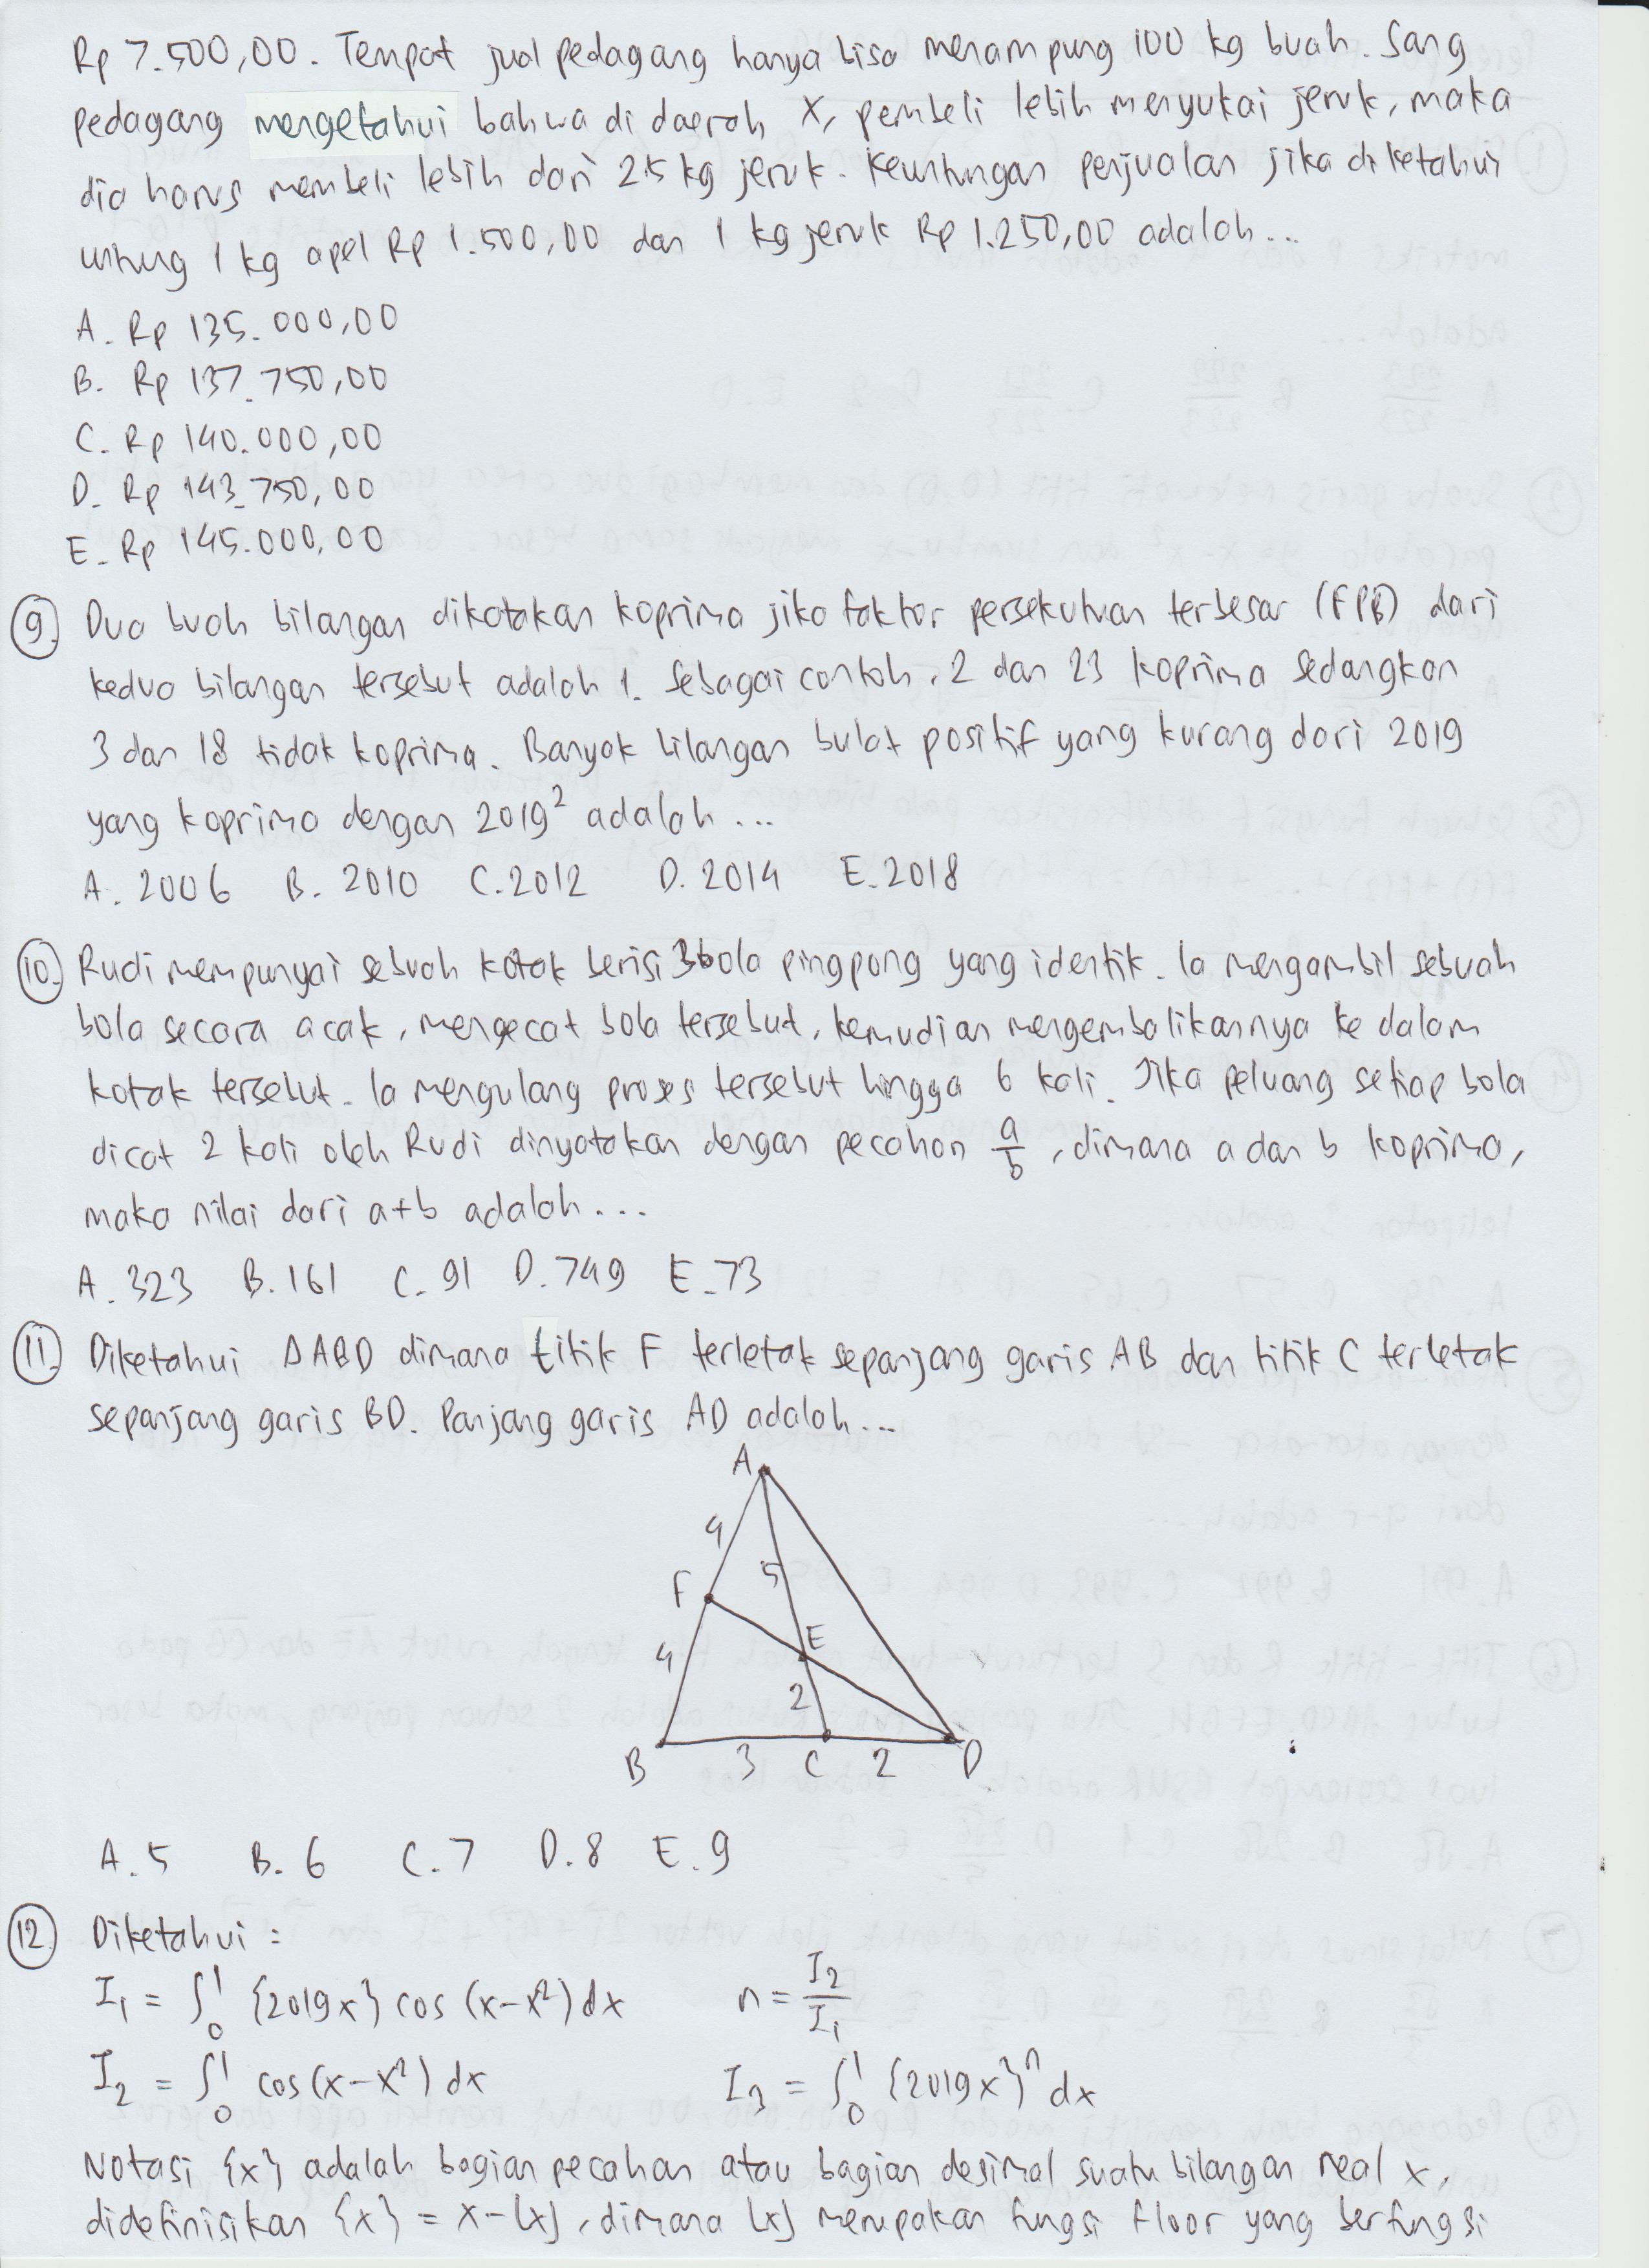 Rp 7.500,00. Tempat jual pedagang hanya bisa menampung 100 kg buah. Sang
pedagang mengetahui bahwa di daerah X, pembeli lebih menyukai jeruk, maka
dia harus membeli lebih dari 25 kg jeruk. Keuntungan penjualan jika diketahui
untung 1 kg apel Rp 1.500,00 dan 1 kg jeruk Rp 1.250,00 adalah...
A. Rp 135.000,00
B. Rp 137.750,00
C. Rp 140.000,00
D. Rp 143.750,00
E. Rp 145.000,00
9. Dua buah bilangan dikatakan koprima jika faktor persekutuan terbesar (FPB) dari
kedua bilangan tersebut adalah 1. Sebagai contoh, 2 dan 23 koprima sedangkan
3 dan 18 tidak koprima. Banyak bilangan bulat positif yang kurang dari 2019
yang koprima dengan 2019² adalah ...
A. 2006 B. 2010 C. 2012 D. 2014 E. 2018
10. Rudi mempunyai sebuah kotak berisi 3 bola pingpong yang identik. Ia mengambil sebuah
bola secara acak, mengecat bola tersebut, kemudian mengembalikannya ke dalam
kotak tersebut. Ia mengulang proses tersebut hingga 6 kali. Jika peluang setiap bola
dicat 2 kali oleh Rudi dinyatakan dengan pecahan a/b, dimana a dan b koprima,
maka nilai dari a+b adalah...
A. 323 B. 161 C. 91 D. 749 E. 73
11. Diketahui ΔABD dimana titik F terletak sepanjang garis AB dan titik C terletak
sepanjang garis BD. Panjang garis AD adalah...
A
4
5
F
E
4
2
B 3 C 2 D
A. 5 B. 6 C. 7 D. 8 E. 9
12. Diketahui :
I₁ = ∫₀¹ {2019x} cos (x-x²) dx n = I₂/I₁
I₂ = ∫₀¹ cos (x-x²) dx I₃ = ∫₀¹ {2019x}ⁿ dx
Notasi {x} adalah bagian pecahan atau bagian desimal suatu bilangan real x,
didefinisikan {x} = x-⌊x⌋, dimana ⌊x⌋ merupakan fungsi floor yang berfungsi